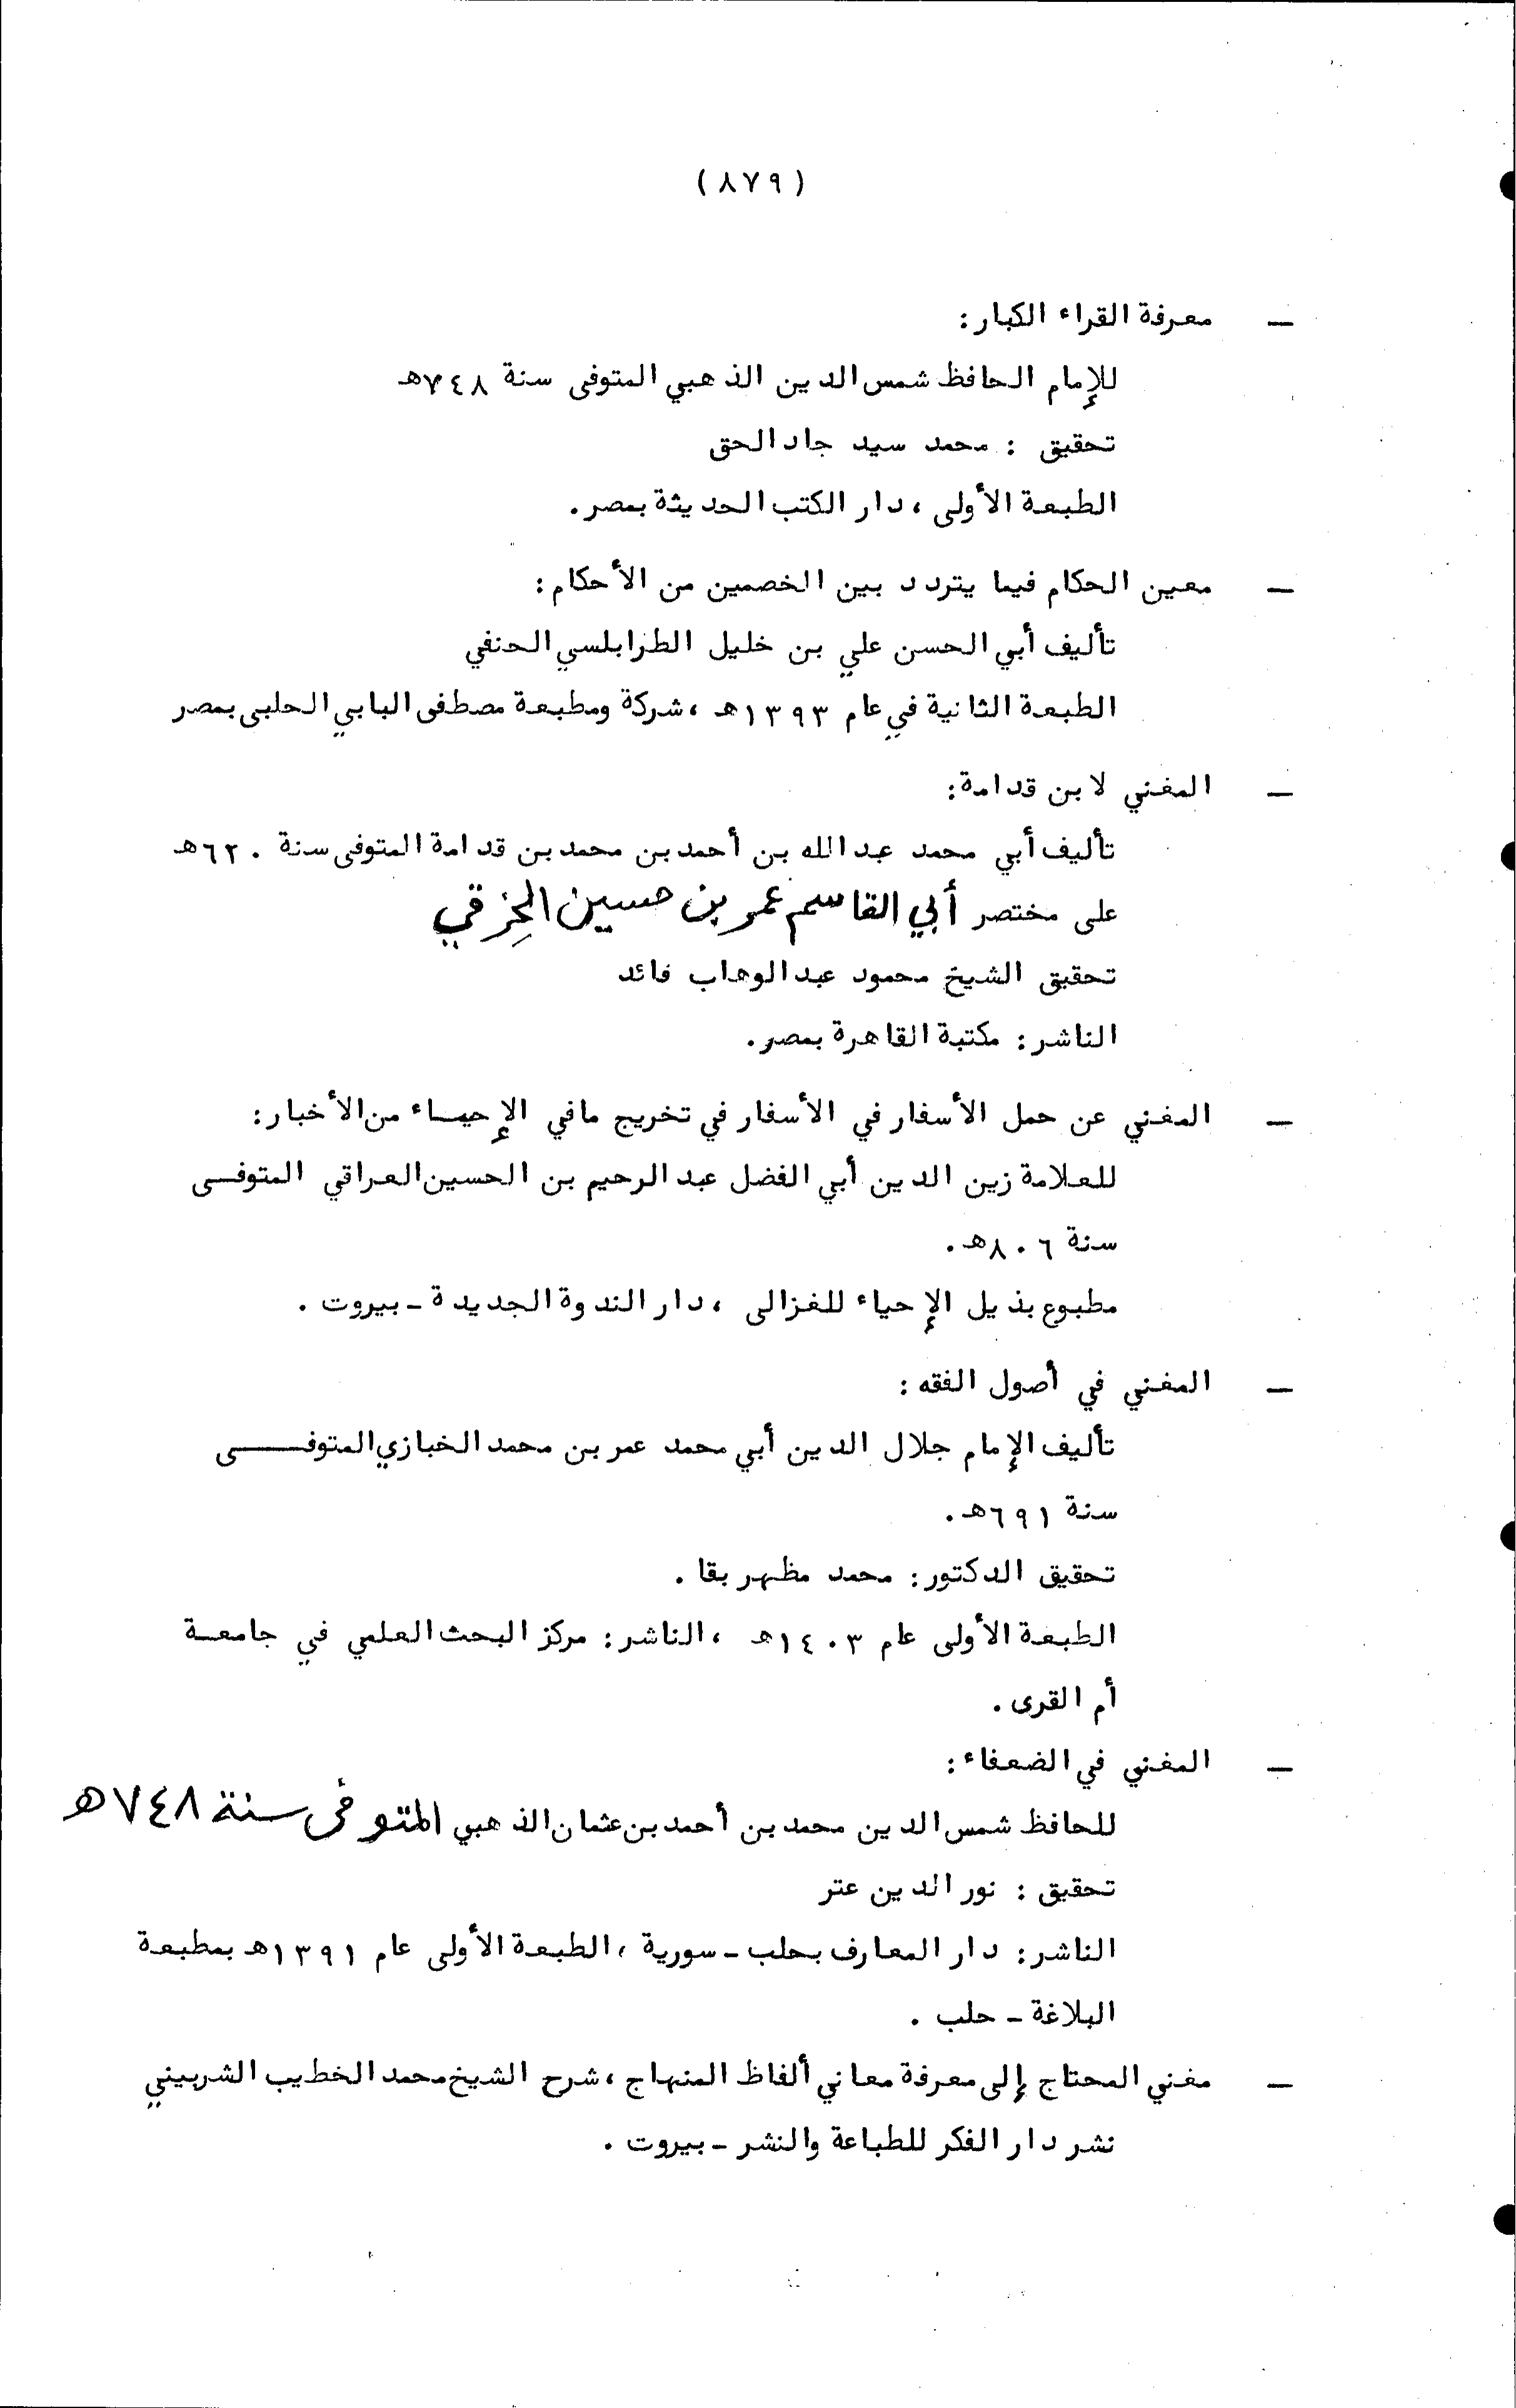 (٨٧٩)
ـ معرفة القراء الكبار:
للإمام الحافظ شمس الدين الذهبي المتوفى سنة ٧٤٨هـ
تحقيق : محمد سيد جاد الحق
الطبعة الأولى ، دار الكتب الحديثة بمصر.
ـ معين الحكام فيما يتردد بين الخصمين من الأحكام:
تأليف أبي الحسن علي بن خليل الطرابلسي الحنفي
الطبعة الثانية في عام ١٣٩٣هـ ، شركة ومطبعة مصطفى البابي الحلبى بمصر
ـ المغني لابن قدامة:
تأليف أبي محمد عبد الله بن أحمد بن محمد بن قدامة المتوفى سنة ٦٢٠هـ
على مختصر أبي القاسم عمر بن حسين الخِرقي
تحقيق الشيخ محمود عبد الوهاب فائد
الناشر: مكتبة القاهرة بمصر.
ـ المغني عن حمل الأسفار في الأسفار في تخريج مافي الإحيـاء من الأخبار:
للعلامة زين الدين أبي الفضل عبد الرحيم بن الحسين العراقي المتوفـى
سنة ٨٠٦هـ.
مطبوع بذيل الإحياء للغزالى ، دار الندوة الجديدة ـ بيروت .
ـ المغني في أصول الفقه :
تأليف الإمام جلال الدين أبي محمد عمر بن محمد الخبازي المتوفـــى
سنة ٦٩١هـ.
تحقيق الدكتور: محمد مظهر بقا .
الطبعة الأولى عام ١٤٠٣هـ ، الناشر: مركز البحث العلمي في جامعـة
أم القرى .
ـ المغني في الضعفاء:
للحافظ شمس الدين محمد بن أحمد بن عثمان الذهبي المتوفى سنة ٧٤٨هـ
تحقيق : نور الدين عتر
الناشر: دار المعارف بحلب ـ سورية ، الطبعة الأولى عام ١٣٩١هـ بمطبعة
البلاغة ـ حلب .
ـ مغني المحتاج إلى معرفة معاني ألفاظ المنهاج ، شرح الشيخ محمد الخطيب الشربيني
نشر دار الفكر للطباعة والنشر ـ بيروت .